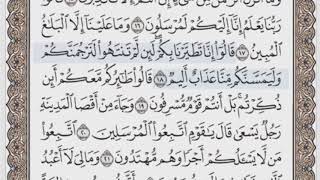 وَمَآ أَنزَلَ ٱلرَّحْمَٰنُ مِن شَىْءٍ إِنْ أَنتُمْ إِلَّا تَكْذِبُونَ
رَبُّنَا يَعْلَمُ إِنَّآ إِلَيْكُمْ لَمُرْسَلُونَ ١٦ وَمَا عَلَيْنَآ إِلَّا ٱلْبَلَٰغُ
ٱلْمُبِينُ ١٧ قَالُوٓا۟ إِنَّا تَطَيَّرْنَا بِكُمْ لَئِن لَّمْ تَنتَهُوا۟ لَنَرْجُمَنَّكُمْ
وَلَيَمَسَّنَّكُم مِّنَّا عَذَابٌ أَلِيمٌ ١٨ قَالُوا۟ طَٰٓئِرُكُم مَّعَكُمْ أَئِن
ذُكِّرْتُم بَلْ أَنتُمْ قَوْمٌ مُّسْرِفُونَ ١٩ وَجَآءَ مِنْ أَقْصَا ٱلْمَدِينَةِ
رَجُلٌ يَسْعَىٰ قَالَ يَٰقَوْمِ ٱتَّبِعُوا۟ ٱلْمُرْسَلِينَ ٢٠ ٱتَّبِعُوا۟
مَن لَّا يَسْـَٔلُكُمْ أَجْرًا وَهُم مُّهْتَدُونَ ٢١ وَمَا لِىَ لَآ أَعْبُدُ